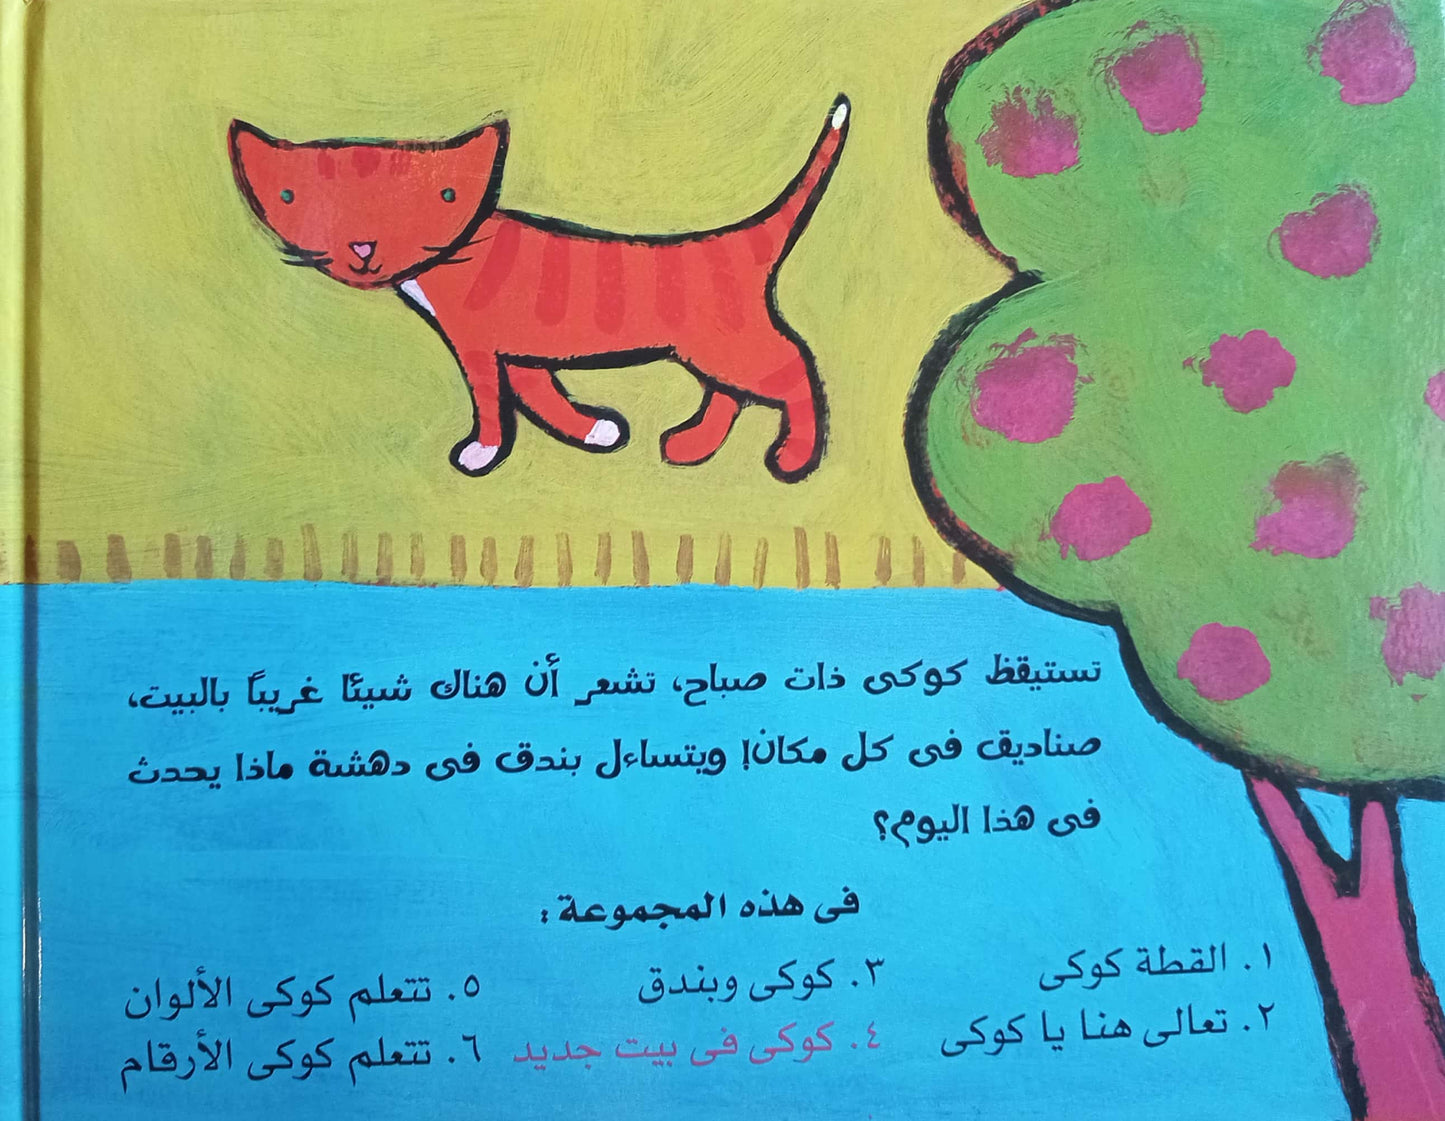 تستيقظ كوكى ذات صباح، تشعر أن هناك شيئا غريباً بالبيت،
صناديق فى كل مكان! ويتساءل بندق فى دهشة ماذا يحدث
فى هذا اليوم؟
فى هذه المجموعة :
١. القطة كوكى
٢. تعالى هنا يا كوكى
٣. كوكى وبندق
٤. كوكى فى بيت جديد
٥. تتعلم كوكى الألوان
٦. تتعلم كوكى الأرقام